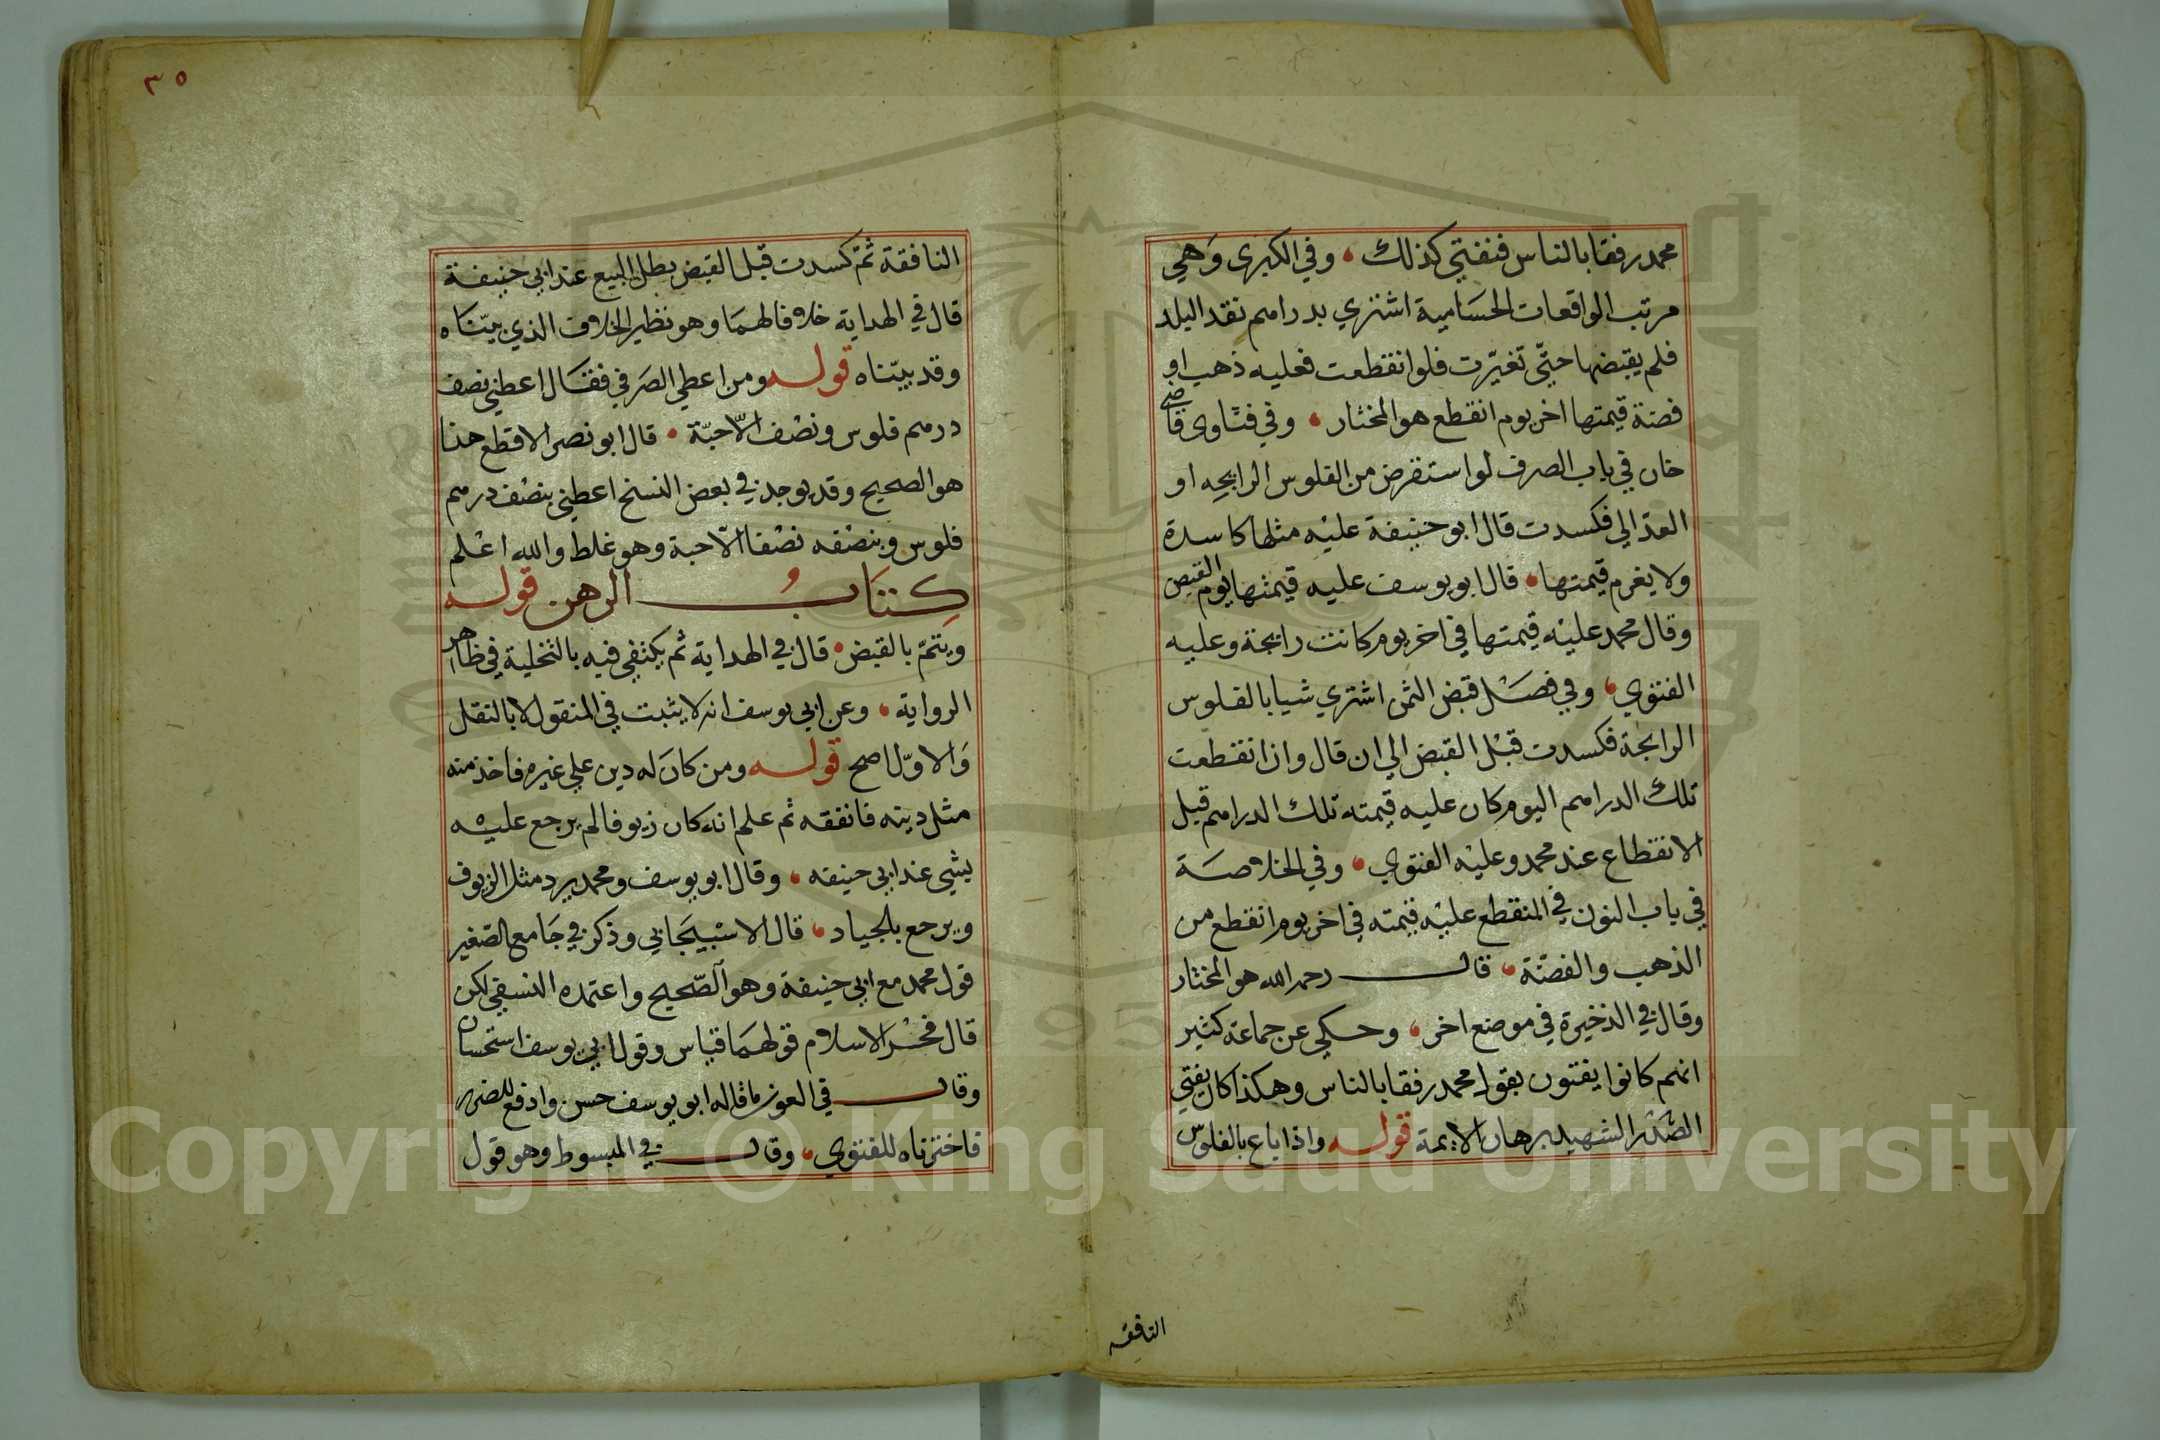 محمد رفقا بالناس فنفتي كذلك وفي الكبرى وهي
مرتب الواقعات الحسامية اشتري بدراهم نقد البلد
فلم يقبضها حتي تغيرت فلوا نقطعت فعليه ذهب او
فضة قيمتها اخر يوم انقطع هو المختار وفي فتاوى قاضي
خان في باب الصرف لو استقرض من الفلوس الرايجه او
العدالي فكسدت قال ابو حنيفة عليه مثلها كاسدة
ولا يغرم قيمتها قال ابو يوسف عليه قيمتها يوم القبض
وقال محمد عليه قيمتها في اخر يوم كانت رايجة وعليه
الفتوي وفي فصل قبض الثمن اشتري شيا بالفلوس
الرايجة فكسدت قبل القبض الي ان قال واذا نقطعت
تلك الدراهم اليوم كان عليه قيمته تلك الدراهم قبل
الانقطاع عند محمد وعليه الفتوي وفي الخلاصة
في باب النون في المنقطع عليه قيمته في اخر يوم انقطع من
الذهب والفضة قال رحمه الله هو المختار
وقال في الذخيرة في موضع اخر وحكي عن جماعة كثير
انهم كانوا يفتون بقول محمد رفقا بالناس وهكذا كان يفتي
الصدر الشهيد برهان الايمة قوله واذا باع بالفلوس
النافقه
٣٥
النافقة ثم كسدت قبل القبض بطل البيع عند ابي حنيفة
قال في الهداية خلافا لهما وهو نظير الخلاف الذي بيناه
وقد بيناه قوله ومن اعطي الصرفي فقال اعطني نصف
درهم فلوس ونصف الا حبة قال ابو نصر الاقطع هذا
هو الصحيح وقد يوجد في بعض النسخ اعطني بنصف درهم
فلوس وبنصفه نصفا الا حبة وهو غلط والله اعلم
كتاب الرهن قوله
ويتم بالقبض قال في الهداية ثم يكتفي فيه بالتخلية في ظاهر
الرواية وعن ابي يوسف انه لا يثبت في المنقول لا بالنقل
والاول اصح قوله ومن كان له دين علي غيره فاخذ منه
مثل دينه فانفقه ثم علم انه كان زيوفا لم يرجع عليه
بشي عند ابي حنيفه وقال ابو يوسف ومحمد يرد مثل الزيوف
ويرجع بالجياد قال الاسبيجابي وذكر في جامع الصغير
قول محمد مع ابي حنيفة وهو الصحيح واعتمده النسفي لكن
قال فخر الاسلام قولهما قياس وقول ابي يوسف استحسان
وقال في العون ما قاله ابو يوسف حسن وادفع للضرر
فاخترناه للفتوي وقال في المبسوط وهو قول
Copyright © King Saud University